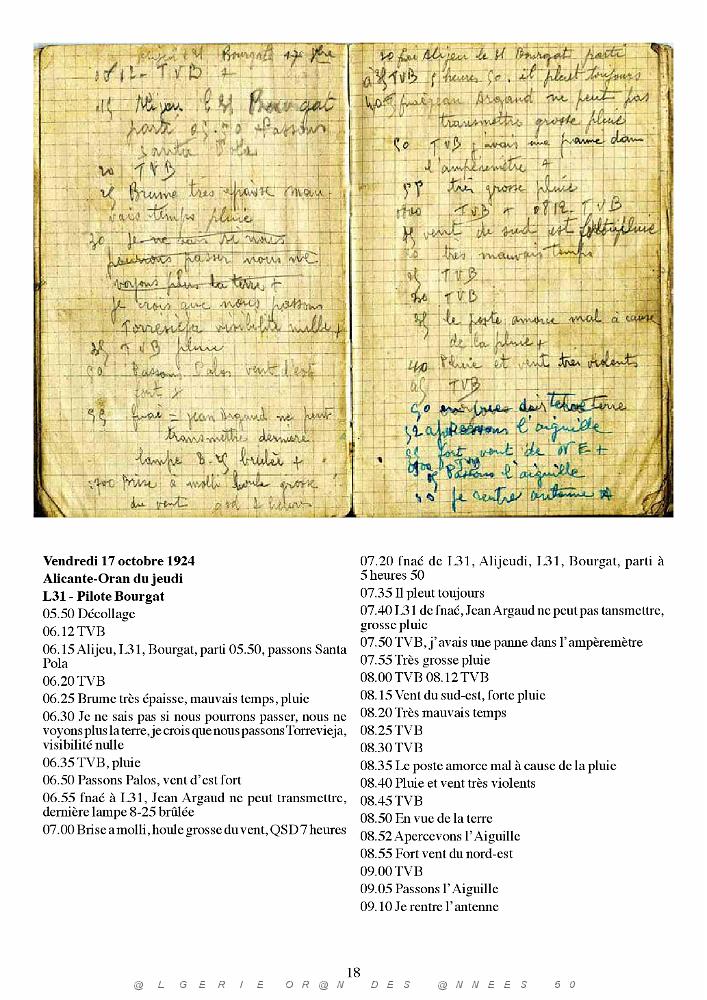 0812 - TVB +
parti 05.50 + Passons
Santa Pola
20 TVB
25 Brume très épaisse mau-
vais temps pluie
30 Je ne sais si nous
pourrons passer nous ne
voyons plus la terre +
je crois que nous passons
Torrevieja visibilité nulle +
35 TVB pluie
50 Passons Palos vent d'est
fort +
55 fnaé = Jean Argaud ne peut
transmettre dernière
lampe 8.25 brulée +
0700 Brise a molli houle grosse
du vent qsd 7 heures
à 35 TVB 5 heures 50. il pleut toujours
Jean Argaud ne peut pas
transmettre grosse pluie
50 TVB j'avais une panne dans
l'ampèremètre +
55 très grosse pluie
0800 TVB + 0812 TVB
15 vent de sud est forte pluie
20 très mauvais temps
25 TVB
30 TVB
35 le poste amorce mal à cause
de la pluie +
40 Pluie et vent très violents
45 TVB
l'aiguille
55 fort vent de NE +
0900 TVB
05 Passons l'aiguille
10 je rentre antenne
Vendredi 17 octobre 1924
Alicante-Oran du jeudi
L31 - Pilote Bourgat
05.50 Décollage
06.12 TVB
06.15 Alijeu, L31, Bourgat, parti 05.50, passons Santa
Pola
06.20 TVB
06.25 Brume très épaisse, mauvais temps, pluie
06.30 Je ne sais pas si nous pourrons passer, nous ne
voyons plus la terre, je crois que nous passons Torrevieja,
visibilité nulle
06.35 TVB, pluie
06.50 Passons Palos, vent d'est fort
06.55 fnaé à L31, Jean Argaud ne peut transmettre,
dernière lampe 8-25 brûlée
07.00 Brise a molli, houle grosse du vent, QSD 7 heures
07.20 fnaé de L31, Alijeudi, L31, Bourgat, parti à
5 heures 50
07.35 Il pleut toujours
07.40 L31 de fnaé, Jean Argaud ne peut pas tansmettre,
grosse pluie
07.50 TVB, j'avais une panne dans l'ampèremètre
07.55 Très grosse pluie
08.00 TVB 08.12 TVB
08.15 Vent du sud-est, forte pluie
08.20 Très mauvais temps
08.25 TVB
08.30 TVB
08.35 Le poste amorce mal à cause de la pluie
08.40 Pluie et vent très violents
08.45 TVB
08.50 En vue de la terre
08.52 Apercevons l'Aiguille
08.55 Fort vent du nord-est
09.00 TVB
09.05 Passons l'Aiguille
09.10 Je rentre l'antenne
18
@ L G E R I E O R @ N D E S @ N N E E S 5 0